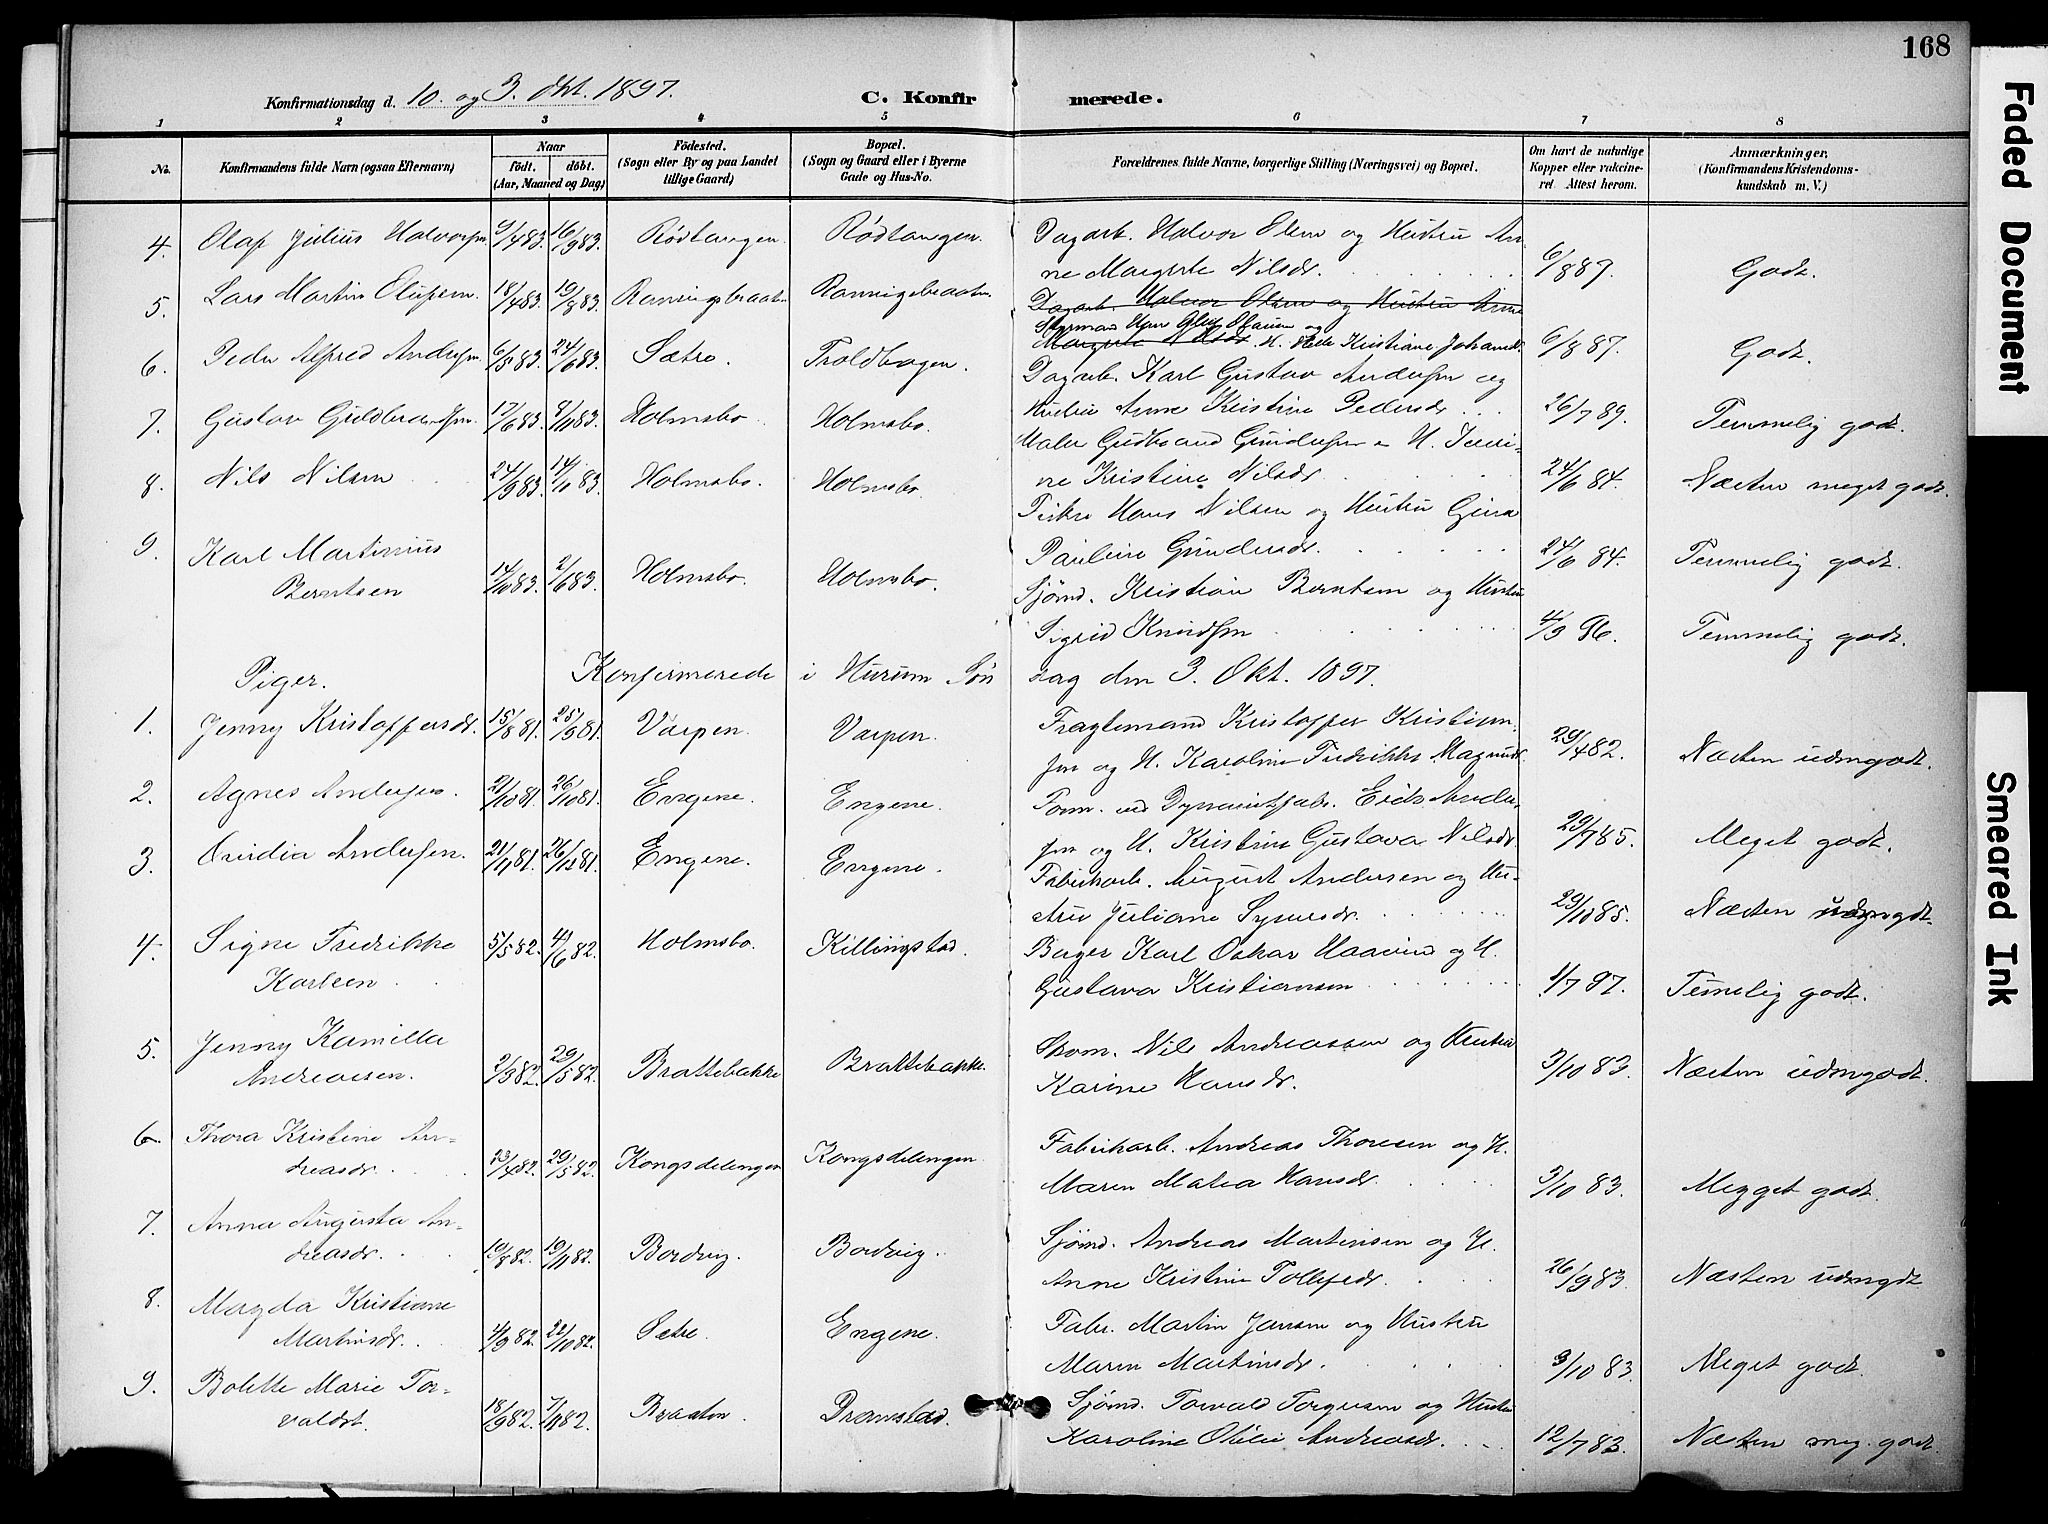 168
Konfirmationsdag d. 10. og 3. Okt. 1897.
C. Konfirmerede.
1 2 3 4 5 6 7 8
No.
Konfirmandens fulde Navn (ogsaa Efternavn)
Naar
födt. döbt.
(Aar, Maaned og Dag)
Födested.
(Sogn eller By og paa Landet
tillige Gaard)
Bopæl.
(Sogn og Gaard eller i Byerne
Gade og Hus-No.
Forældrenes fulde Navne, borgerlige Stilling (Næringsvei) og Bopæl.
Om havt de naturlige
Kopper eller vakcine-
ret. Attest herom.
Anmærkninger.
(Konfirmandens Kristendoms-
kundskab m. V.)
4. Olaf Julius Halvorsen 9/4 83. 16/9 83. Rödtangen. Rödtangen. Dagarb. Halvor Olsen og Hustru An-
ne Margrete Nilsdr. 6/8 87. Godt.
5. Lars Martin Olufsen. 18/4 83. 19/8 83. Ramvigbraaten Ramvigbraaten.
Dagarb. Halvor Olsen og Hustru Anne
Margrete Nilsdr. Kristiane Johansd. 6/8 87. Godt.
6. Peder Alfred Andersen 6/5 83. 24/6 83. Sætre. Troldbogen. Dagarb. Karl Gustav Andersen og
Hustru Anne Kristine Pedersdr. 26/7 89. Temmelig godt.
7. Gustav Guldbrandsen. 17/6 83. 8/11 83. Holmsbo. Holmsbo. Maler Gudbrand Gundersen
Kristine Nilsdr. 24/6 84. Næsten meget godt.
8. Nils Nilsen 24/9 83. 14/11 83. Holmsbo. Holmsbo. Fisker Hans Nilsen og Hustru Gina
Pauline Gundersdr. 24/6 84. Temmelig godt.
9. Karl Martinius
Berntsen 14/10 83. 2/6 83. Holmsbo. Holmsbo. Sjömd. Kristian Berntsen og Hustru
Sigrid Knudsen 4/3 96. Temmelig godt.
Piger. Konfirmerede i Hurum Söndag den 3. Okt. 1897.
1. Jenny Kristoffersdr. 15/8 81. 25/9 81. Varpen. Varpen. Fragtemand Kristoffer Kristian-
sen og H. Karoline Fredrikke Magnusdr 29/4 82. Næsten udmgodt.
2. Agnes Andersen. 21/10 81. 26/10 81. Engene. Engene. Form. ved Dynamitfabr. Erik Ander-
sen og H. Kristine Gustava Nilsdr. 29/7 85. Meget godt.
3. Ovidia Andersen. 21/11 81. 26/12 81. Engene. Engene. Fabrikarb. August Andersen og Hu-
stru Juliane Syversdr. 29/10 85. Næsten udmgdt.
4. Signe Fredrikke
Karlsen 5/5 82. 4/6 82. Holmsbo. Killingstad. Bager Karl Oskar Haavind og H.
Gustava Kristiansen 1/7 97. Temelig godt.
5. Jenny Kamilla
Andreassen. 2/3 82. 29/5 82. Brattebakke Brattebakke. Skom. Nils Andreassen og Hustru
Karine Hansdr. 3/10 83. Næsten udmgodt.
6. Thora Kristine An-
dreasdr. 23/4 82. 29/5 82. Kongsdelengen Kongsdelengen. Fabrikarb. Andreas Thoresen og H.
Maren Matea Hansdr. 3/10 83. Megget godt.
7. Anna Augusta An-
dreasdr. 19/8 82. 19/11 82. Bordvig. Bordvig. Sjömd. Andreas Martinsen og H.
Anne Kristine Tollefsdr. 26/9 83. Næsten udmgdt
8. Magda Kristiane
Martinsdr. 4/9 82. 22/10 82. Sætre. Engene. Fabr. Martin Jansen og Hustru
Maren Martinsdr. 3/10 83. Meget godt.
9. Bolette Marie Tor-
valdst. 18/9 82. 7/11 82. Braaten. Dramstad. Sjömd. Torvald Torgersen og Hustru
Karoline Otilie Andreasdr. 12/7 83. Næsten meg. godt.
Faded Document
Smeared Ink